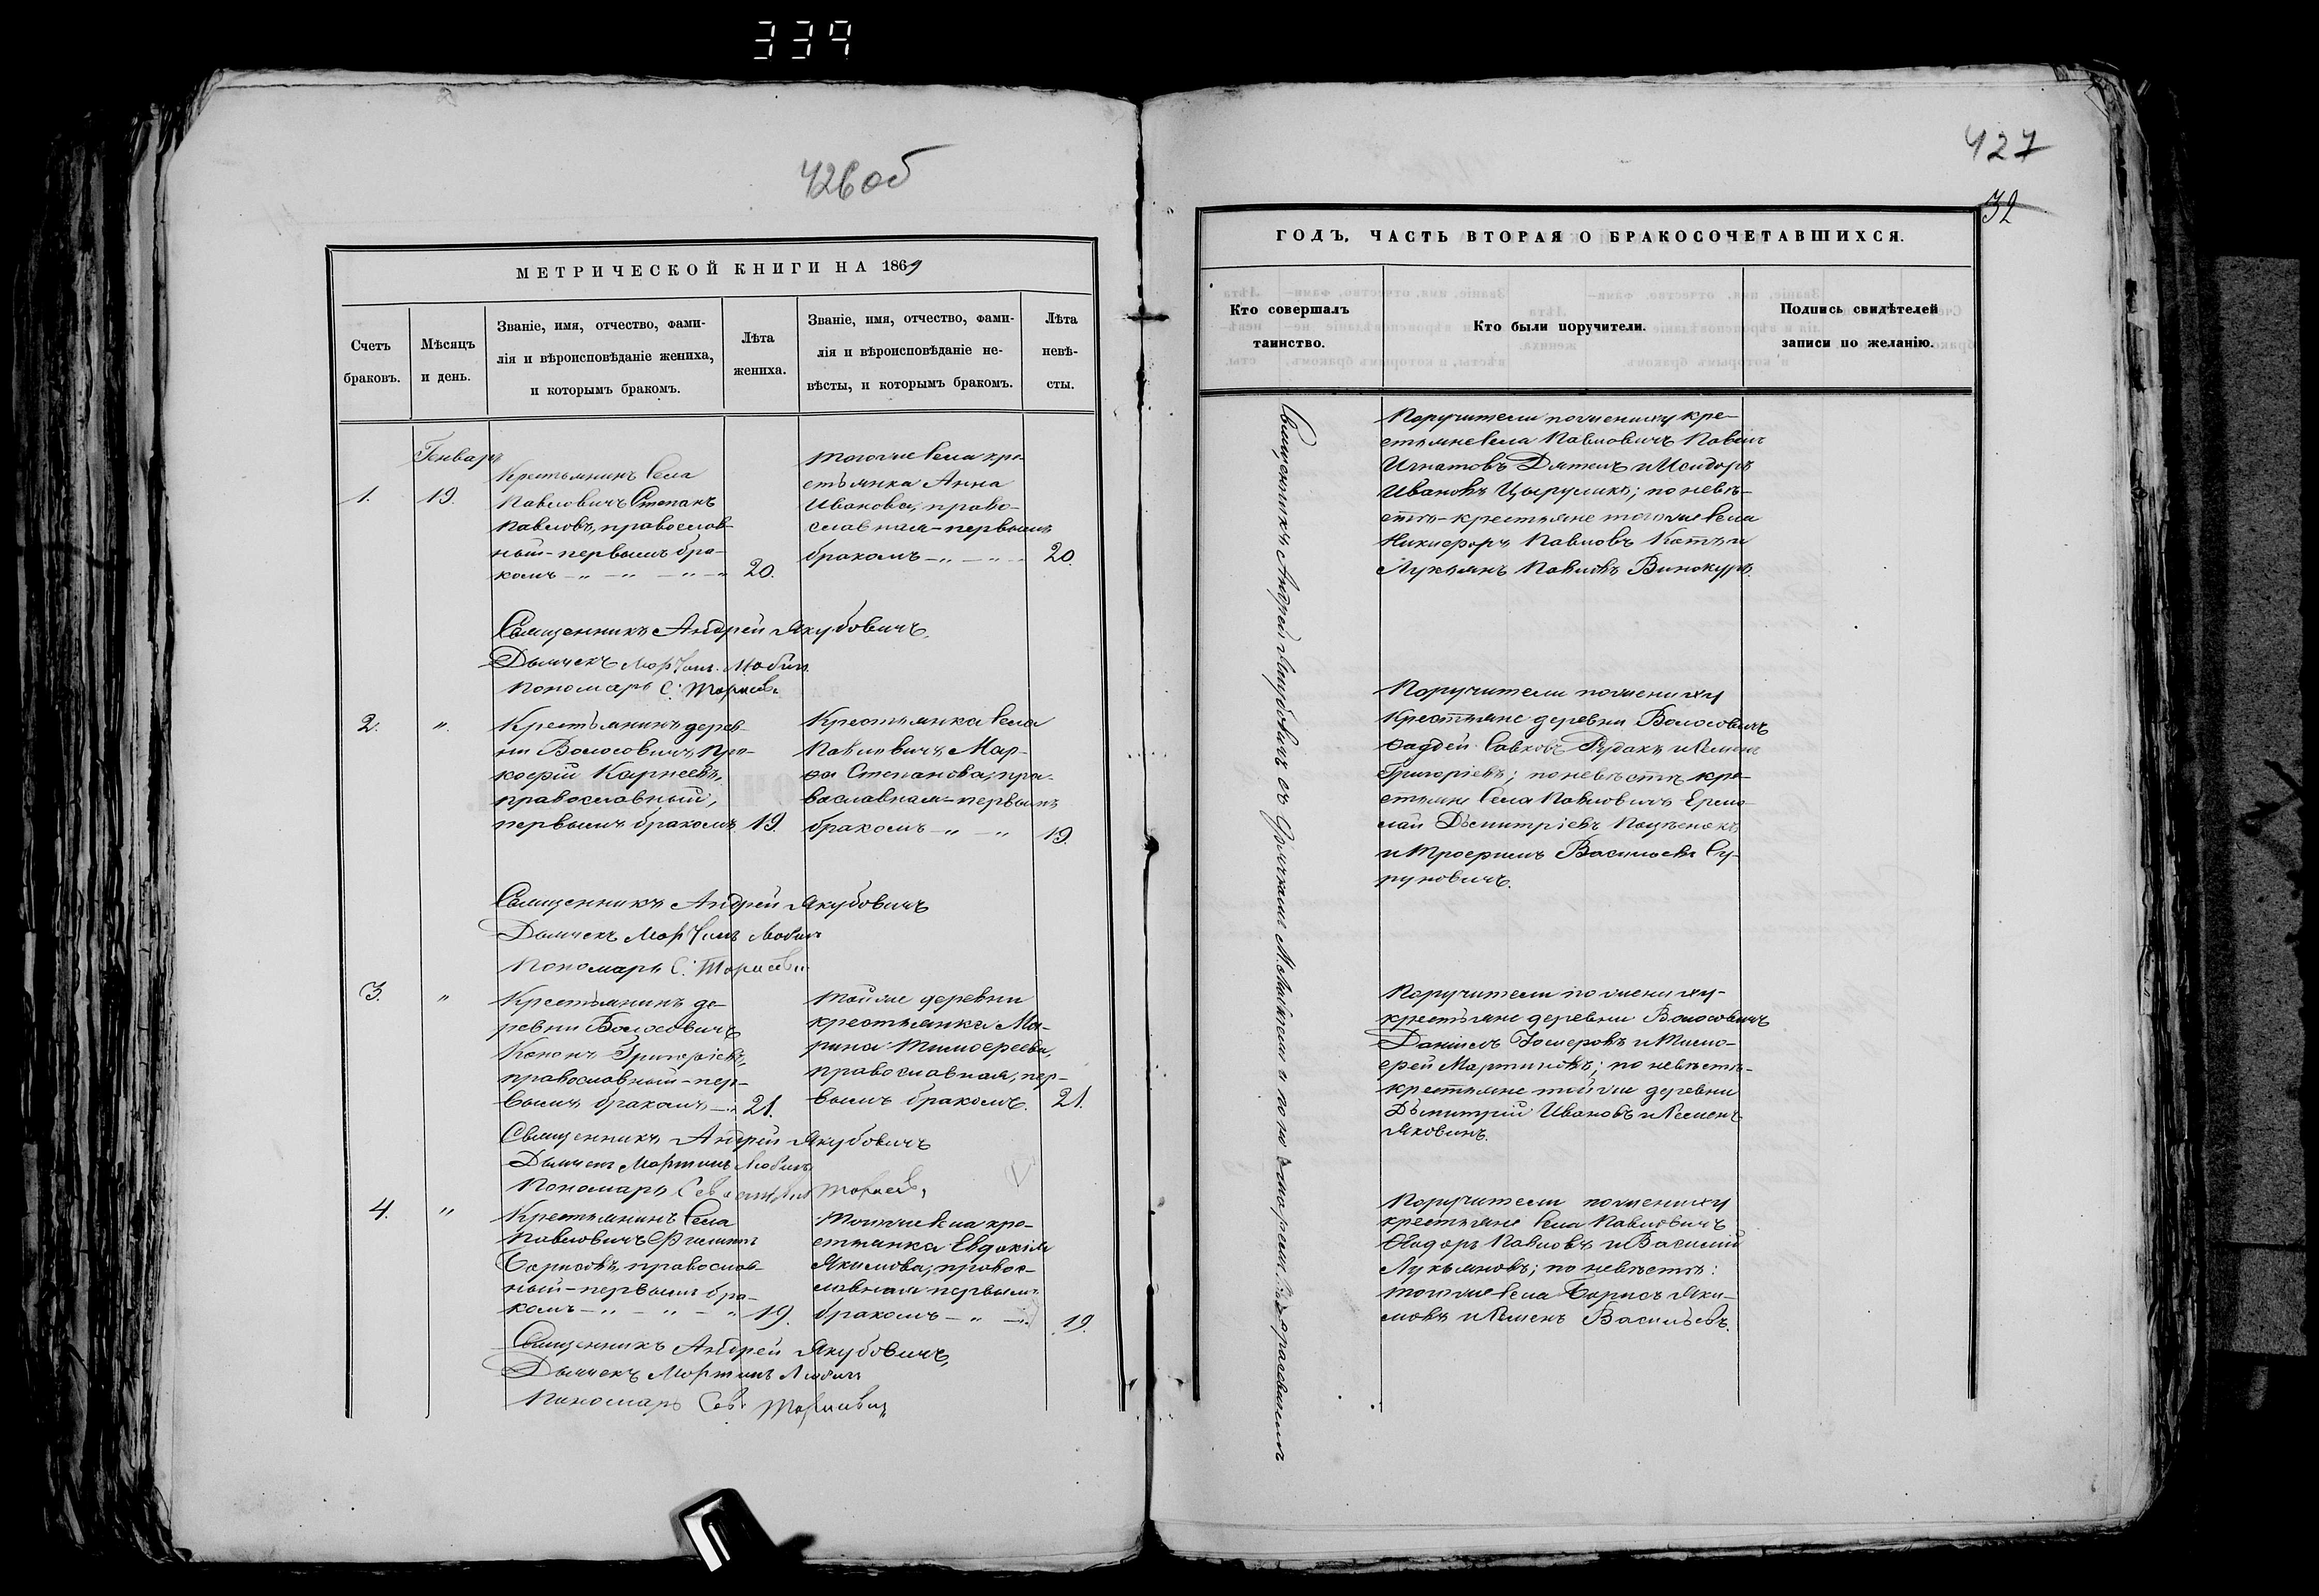 339
426 об
МЕТРИЧЕСКОЙ КНИГИ НА 1869
Счетъ браковъ.
Мѣсяцъ и день.
Званіе, имя, отчество, фами-
лія и вѣроисповѣданіе жениха,
и которымъ бракомъ.
Лѣта
жениха.
Званіе, имя, отчество, фами-
лія и вѣроисповѣданіе не-
вѣсты, и которымъ бракомъ.
Лѣта
невѣ-
сты.
Генварь
1.
19.
Крестьянинъ села
Павловичъ Степанъ
Павловъ, православ-
ный – первымъ бра-
комъ – „ – „ – „ – „
20.
тогоже села кре-
стьянка Анна
Иванова, право-
славная – первымъ
бракомъ – „ – „ –
20.
Священникъ Андрей Якубовичъ.
Дьячекъ
Пономарь С.
2.
„
Крестьянинъ дерев-
ни Волосовичъ Про-
кофій Карнеевъ,
православный,
первымъ бракомъ
19.
Крестьянка села
Павловичъ Мар-
фа Степанова, пра-
вославная – первымъ
бракомъ – „ – „
19.
Священникъ Андрей Якубовичъ
Дьячекъ
Пономарь С.
3.
„
Крестьянинъ де-
ревни Волосовичъ
Конон Григорьевъ,
православный – пер-
вымъ бракомъ – „
21.
Тойже деревни
крестьянка Ма-
рина Тимофеева,
православная, пер-
вымъ бракомъ.
21.
Священникъ Андрей Якубовичъ
Дьячекъ Мартинъ
Пономарь
4.
„
Крестьянинъ села
Павловичъ Филиппъ
Борисовъ, православ-
ный – первымъ бра-
комъ – „ – „ – „
19.
Тогоже села кре-
стьянка Евдокія
Якимова, правос-
лавная первымъ
бракомъ – „ –
19.
Священникъ Андрей Якубовичъ,
Дьячекъ Мартинъ
Пономарь
427
32
ГОДЪ, ЧАСТЬ ВТОРАЯ О БРАКОСОЧЕТАВШИХСЯ.
Кто совершалъ
таинство.
Кто были поручители.
Подпись свидѣтелей
записи по желанію.
Священникъ Андрей Якубовичъ съ
Поручители по жениху кре-
стьяне села Павловичъ Павелъ
Игнатовъ Дятелъ и Исидоръ
Ивановъ Цыруликъ; по невѣ-
стѣ – крестьяне тогоже села
Никифоръ Павловъ и
Лукьянъ Павловъ Винокуръ.
Поручители по жениху
крестьяне деревни Волосовичъ
Фаддей Савковъ Рудакъ и Семенъ
Григорьевъ; по невѣстѣ кре-
стьяне села Павловичъ Ермо-
лай Дьмитріевъ
и Трофимъ Васильевъ Су-
руновичъ.
Поручители по жениху –
крестьяне деревни Волосовичъ
Даніилъ и Тимо-
фей Мартиновъ; по невѣстѣ –
крестьяне тойже деревни
Дьмитрій Ивановъ и Семенъ
Яковинъ.
Поручители по жениху
крестьяне села Павловичъ
Ѳеодоръ Павловъ и Василій
Лукьяновъ; по невѣстѣ:
тогоже села Борисъ Яки-
мовъ и Семенъ Васильевъ.